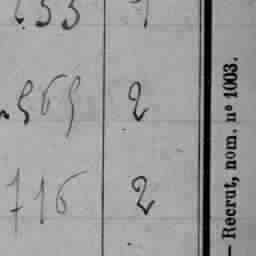 565 2
716 2
— Recrut, nom. nº 1003.